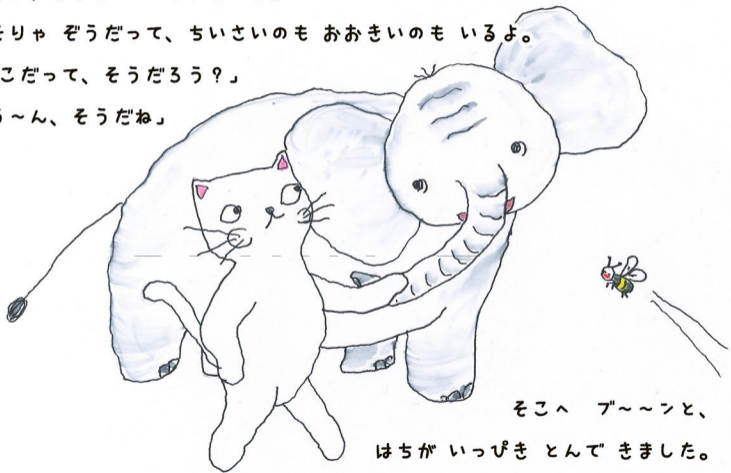 そりゃ ぞうだって、ちいさいのも おおきいのも いるよ。
こだって、そうだろう？」
う〜ん、そうだね」
そこへ ブ〜〜ンと、
はちが いっぴき とんで きました。